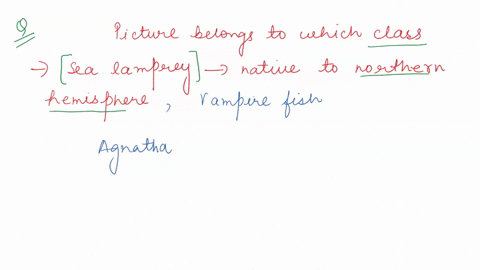 Q Picture belongs to which class
→ [sea lamprey] → native to northern
hemisphere, Vampire fish
Agnatha